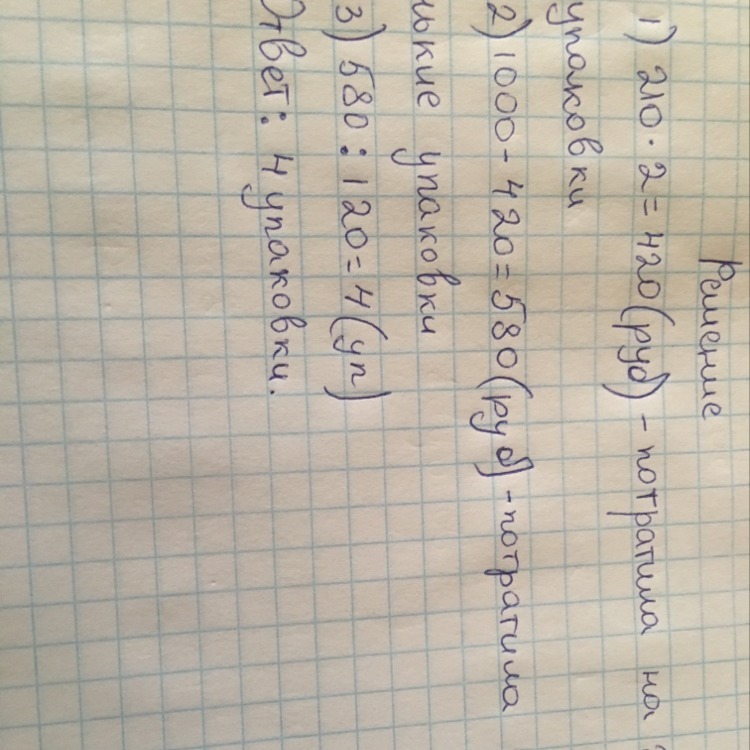 Решение
1) 210 · 2 = 420 (руб) - потратила на
упаковки
2) 1000 - 420 = 580 (руб) - потратила
лькие упаковки
3) 580 : 120 = 4 (уп)
Ответ: 4 упаковки.